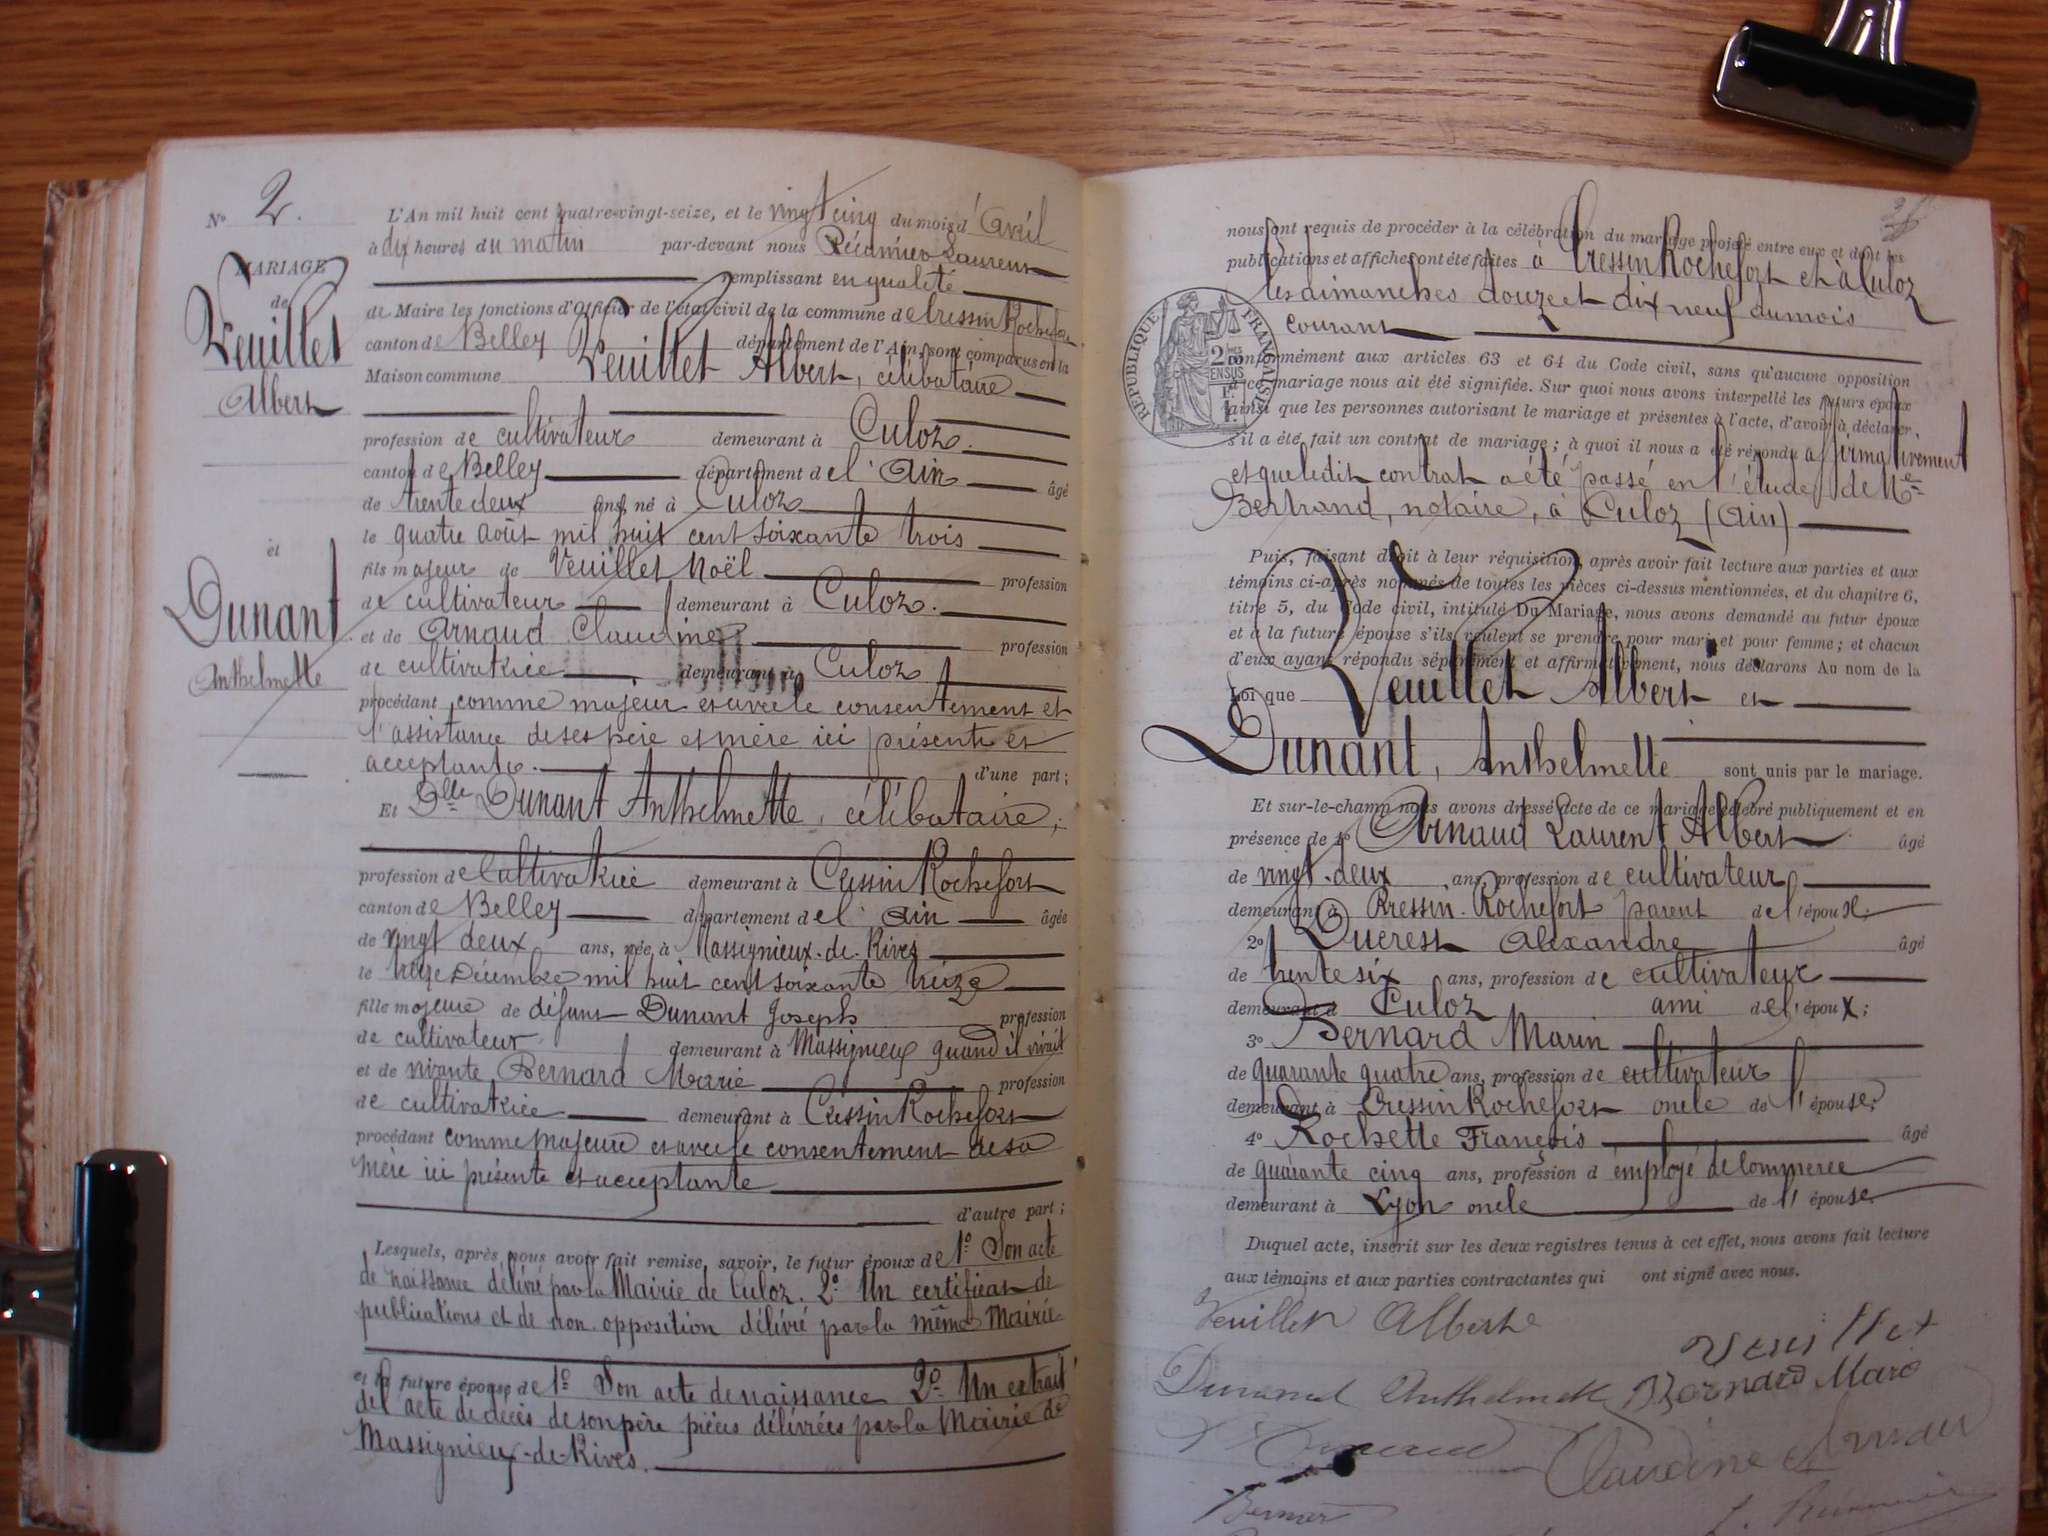 N° 2.
MARIAGE
de
Veuillet
Albert
et
Dunant
Anthelmette
L'An mil huit cent quatre-vingt-seize, et le vingt cinq du mois d'Avril
à dix heures du matin par-devant nous Récamier Laurent
remplissant en qualité
de Maire les fonctions d'Officier de l'état civil de la commune de Cressin Rochefort
canton de Belley département de l'Ain, sont comparus en la
Maison commune Veuillet Albert, célibataire
profession de cultivateur demeurant à Culoz.
canton de Belley département de l'Ain âgé
de trente deux ans, né à Culoz
le quatre août mil huit cent soixante trois
fils majeur de Veuillet Noël profession
de cultivateur demeurant à Culoz.
et de Arnaud Claudine profession
de cultivatrice demeurant à Culoz
procédant comme majeur et avec le consentement et
l'assistance de ses père et mère ici présents et
acceptants. d'une part;
Et Dlle Dunant Anthelmette, célibataire,
profession de Cultivatrice demeurant à Cressin Rochefort
canton de Belley département de l'Ain âgée
de vingt deux ans, née à Massignieux-de-Rives
le treize Décembre mil huit cent soixante treize
fille majeure de défunt Dunant Joseph profession
de cultivateur demeurant à Massignieux quand il vivait
et de vivante Bernard Marie profession
de cultivatrice demeurant à Cressin Rochefort
procédant comme majeure et avec le consentement de sa
mère ici présente et acceptante
d'autre part;
Lesquels, après nous avoir fait remise, savoir, le futur époux de 1° Son acte
de naissance délivré par la Mairie de Culoz. 2° Un certificat de
publications et de non opposition délivré par la même Mairie
et la future épouse de 1° Son acte de naissance 2° Un extrait
de l'acte de décès de son père pièces délivrées par la Mairie de
Massignieux-de-Rives.
nous ont requis de procéder à la célébration du mariage projeté entre eux et dont les
publications et affiches ont été faites à Cressin Rochefort et à Culoz
les dimanches douze et dix neuf du mois
courant
RÉPUBLIQUE FRANÇAISE
2 DMES
EN SUS
conformément aux articles 63 et 64 du Code civil, sans qu'aucune opposition
à ce mariage nous ait été signifiée. Sur quoi nous avons interpellé les futurs époux
ainsi que les personnes autorisant le mariage et présentes à l'acte, d'avoir à déclarer,
s'il a été fait un contrat de mariage; à quoi il nous a été répondu affirmativement
et que ledit contrat a été passé en l'étude de Me
Bertrand, notaire, à Culoz (Ain)
Puis, faisant droit à leur réquisition, après avoir fait lecture aux parties et aux
témoins ci-après nommés de toutes les pièces ci-dessus mentionnées, et du chapitre 6,
titre 5, du Code civil, intitulé Du Mariage, nous avons demandé au futur époux
et à la future épouse s'ils veulent se prendre pour mari et pour femme; et chacun
d'eux ayant répondu séparément et affirmativement, nous déclarons Au nom de la
Loi que Veuillet Albert et
Dunant, Anthelmette sont unis par le mariage.
Et sur-le-champ nous avons dressé acte de ce mariage célébré publiquement et en
présence de 1° Arnaud Laurent Albert âgé
de vingt-deux ans, profession de cultivateur
demeurant à Cressin-Rochefort parent de l'époux;
2° Querest Alexandre âgé
de trente six ans, profession de cultivateur
demeurant à Culoz ami de l'époux;
3° Bernard Marin
de quarante quatre ans, profession de cultivateur
demeurant à Cressin Rochefort oncle de l'épouse;
4° Rochette François âgé
de quarante cinq ans, profession d'employé de commerce
demeurant à Lyon oncle de l'épouse.
Duquel acte, inscrit sur les deux registres tenus à cet effet, nous avons fait lecture
aux témoins et aux parties contractantes qui ont signé avec nous.
Veuillet Albert
Veuillet
Dunand Anthelmette Bernard Marie
Claudine Arnaud